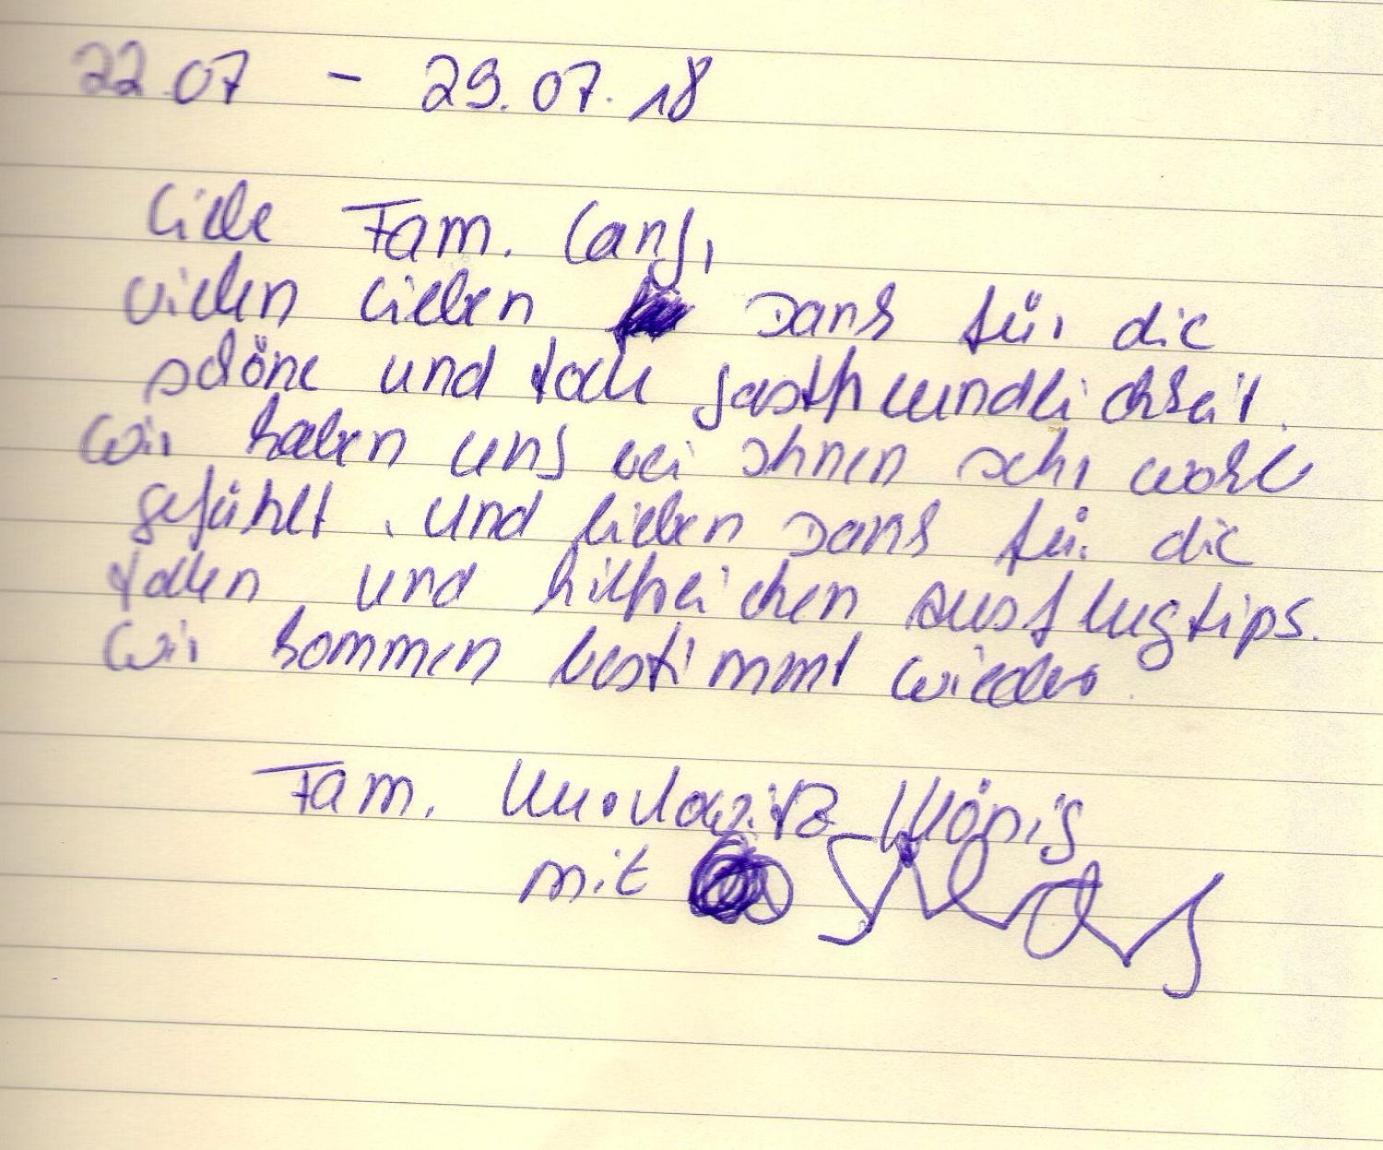 22.07 - 29.07.18
Liebe Fam. Lang,
vielen lieben Dank für die
schöne und tolle gastfreundlichkeit.
Wir haben uns bei ihnen sehr wohl
gefühlt. Und lieben Dank für die
tollen und hilfreichen Ausflugtips.
Wir kommen bestimmt wieder.
Fam.
mit